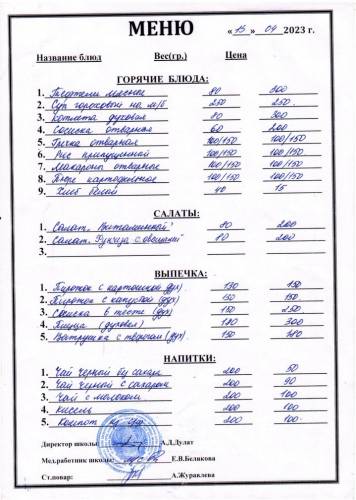 МЕНЮ « 15 » 04 2023 г.
Название блюд Вес(гр.) Цена
ГОРЯЧИЕ БЛЮДА:
1. Тефтели мясные 80 300
2. Суп гороховый на м/б 250 250
3. Котлета духовая 80 300
4. Сосиска отварная 60 200
5. Гречка отварная 100/150 100/150
6. Рис припущенный 100/150 100/150
7. Макароны отварные 100/150 100/150
8. Пюре картофельное 100/150 100/150
9. Хлеб белый 40 15
САЛАТЫ:
1. Салат "Витаминный" 80 200
2. Салат с овощами 80 200
3.
ВЫПЕЧКА:
1. Пирожок с картошкой (дух) 130 150
2. Пирожок с капустой (дух) 150 150
3. Сосиска в тесте (дух) 150 250
4. Пицца (духовая) 180 300
5. Ватрушка с творогом (дух) 150 180
НАПИТКИ:
1. Чай черный без сахара 200 50
2. Чай черный с сахаром 200 90
3. Чай с молоком 200 100
4. Кисель 200 100
5. Компот 200 100
Директор школы А.Л.Дулат
Мед.работник школы: Е.В.Белякова
Ст.повар: А.Журавлева